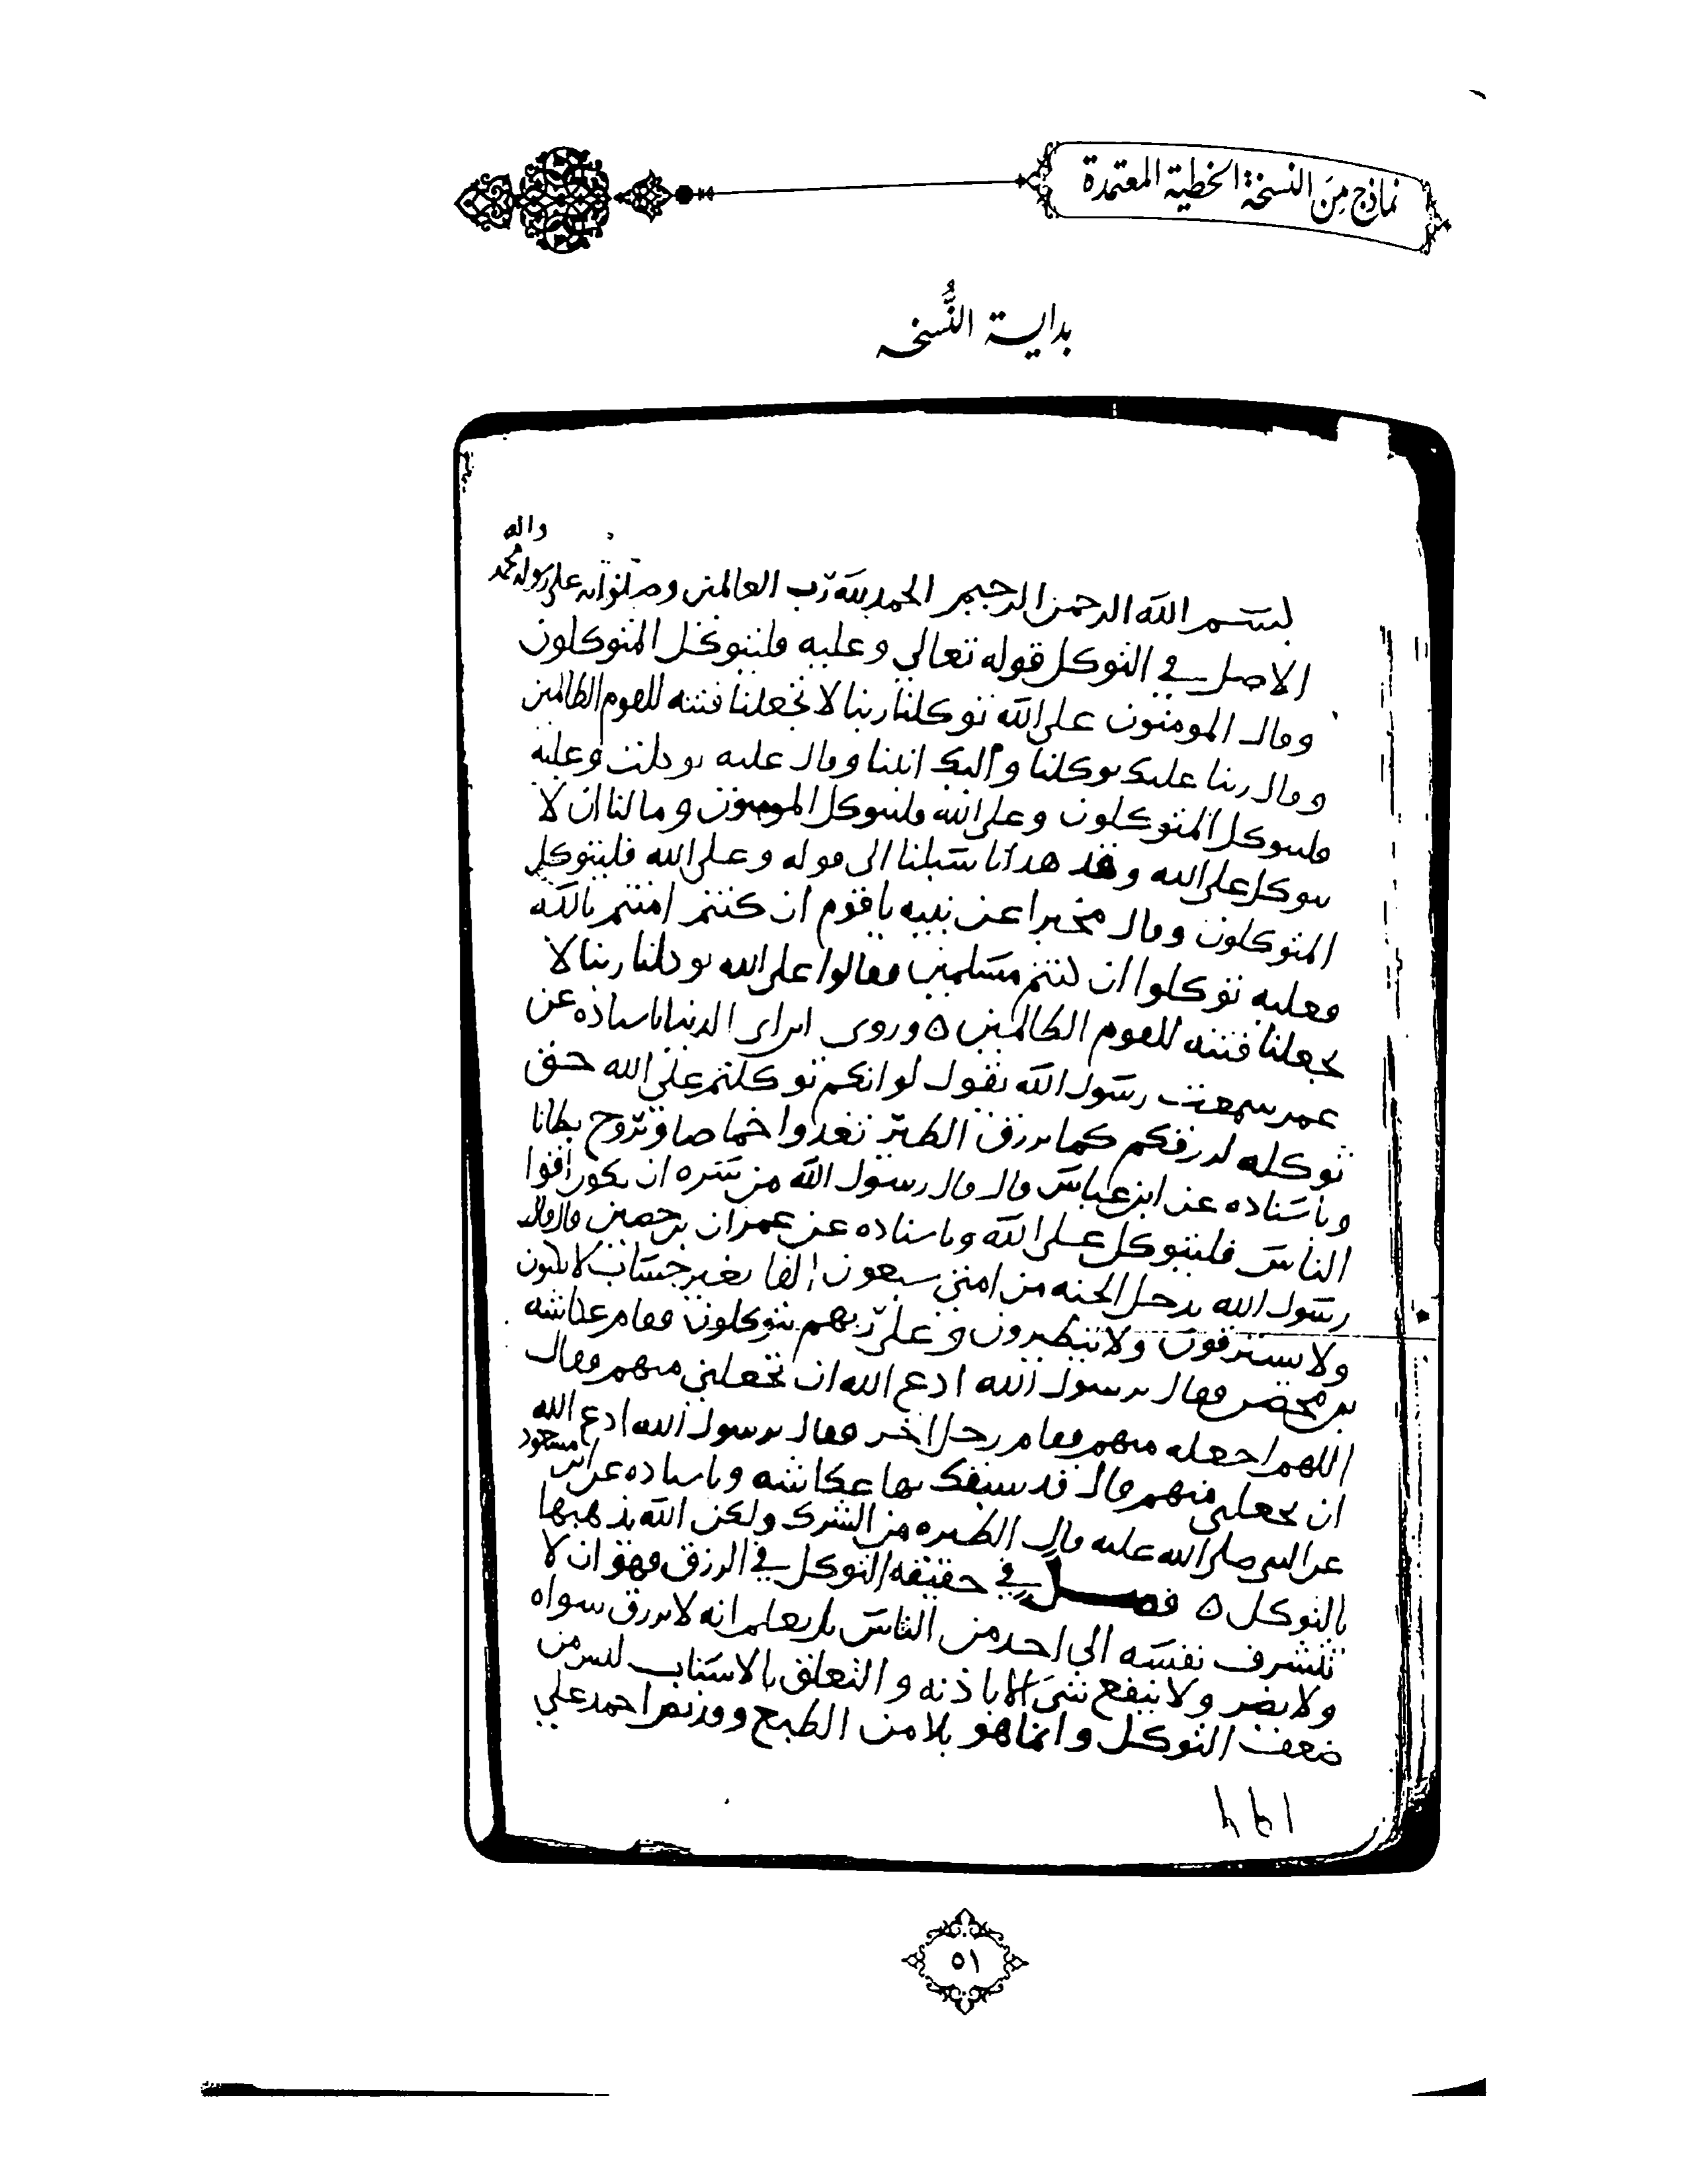 نماذج من النسخة الخطية المعتمدة
بداية النُّسخة
بسم الله الرحمن الرحيم الحمد لله رب العالمين وصلواته على رسوله محمد واله
الاصل في التوكل قوله تعالى وعليه فليتوكل المتوكلون
وقال المومنون على الله توكلنا ربنا لا تجعلنا فتنه للقوم الظالمين
وقال ربنا عليك توكلنا واليك انبنا وقال عليه توكلت وعليه
فليتوكل المتوكلون وعلى الله فليتوكل المومنون وما لنا ان لا
نتوكل على الله وقد هدانا سبلنا الى قوله وعلى الله فليتوكل
المتوكلون وقال مخبرا عن نبيه يا قوم ان كنتم امنتم بالله
فعليه توكلوا ان كنتم مسلمين فقالوا على الله توكلنا ربنا لا
تجعلنا فتنه للقوم الظالمين ٥ وروى ابن ابي الدنيا باسناده عن
عمر سمعت رسول الله يقول لو انكم توكلتم على الله حق
توكله لرزقكم كما يرزق الطير تغدوا خماصا وتروح بطانا
وباسناده عن ابن عباس قال قال رسول الله من سره ان يكون اقوا
الناس فليتوكل على الله وباسناده عن عمران بن حصين قال قال
رسول الله يدخل الجنه من امتي سبعون الفا بغير حساب لا يكتوون
ولا يسترقون ولا يتطيرون وعلى ربهم يتوكلون فقام عكاشه
بن محصن فقال يرسول الله ادع الله ان يجعلني منهم فقال
اللهم اجعله منهم فقام رجل اخر فقال يرسول الله ادع الله
ان يجعلني منهم قال قد سبقك بها عكاشه وباسناده عن ابن مسعود
عن النبي صلى الله عليه قال الطيره من الشرك ولكن الله يذهبها
بالتوكل ٥ فصل في حقيقه التوكل في الرزق فهو ان لا
تتشرف نفسه الى احد من الناس بل يعلم انه لا يرزق سواه
ولا يضر ولا ينفع شي الا باذنه والتعلق بالاسباب ليس من
ضعف التوكل وانما هو بلا من الطبع وقد نص احمد على
٥١